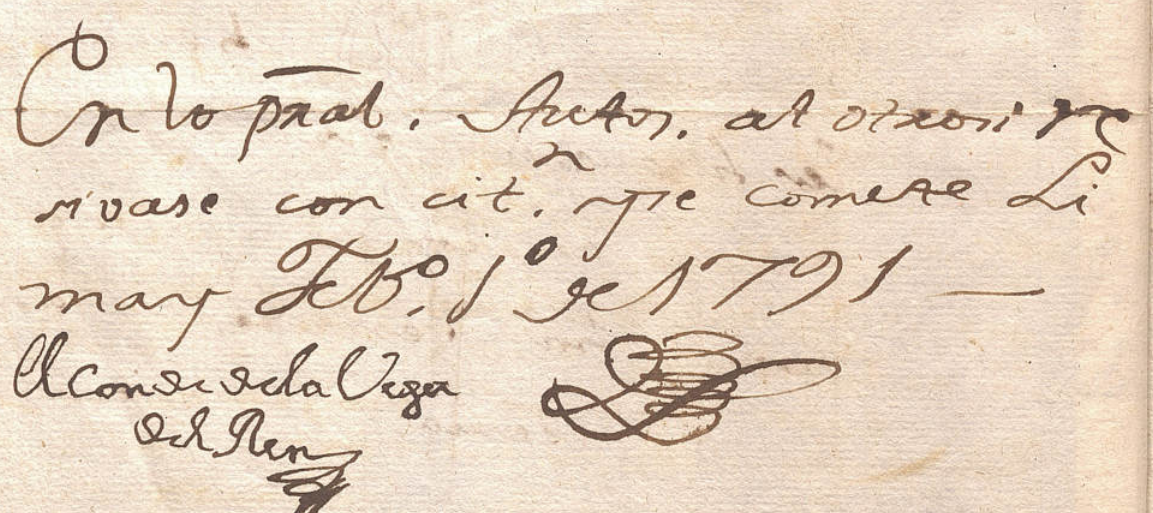 En lo pral. Autos. al otrosi re
sivase con cit.n y se comete Li
ma y Feb.o 1o de 1791 —
El Conde de la Vega
del Ren